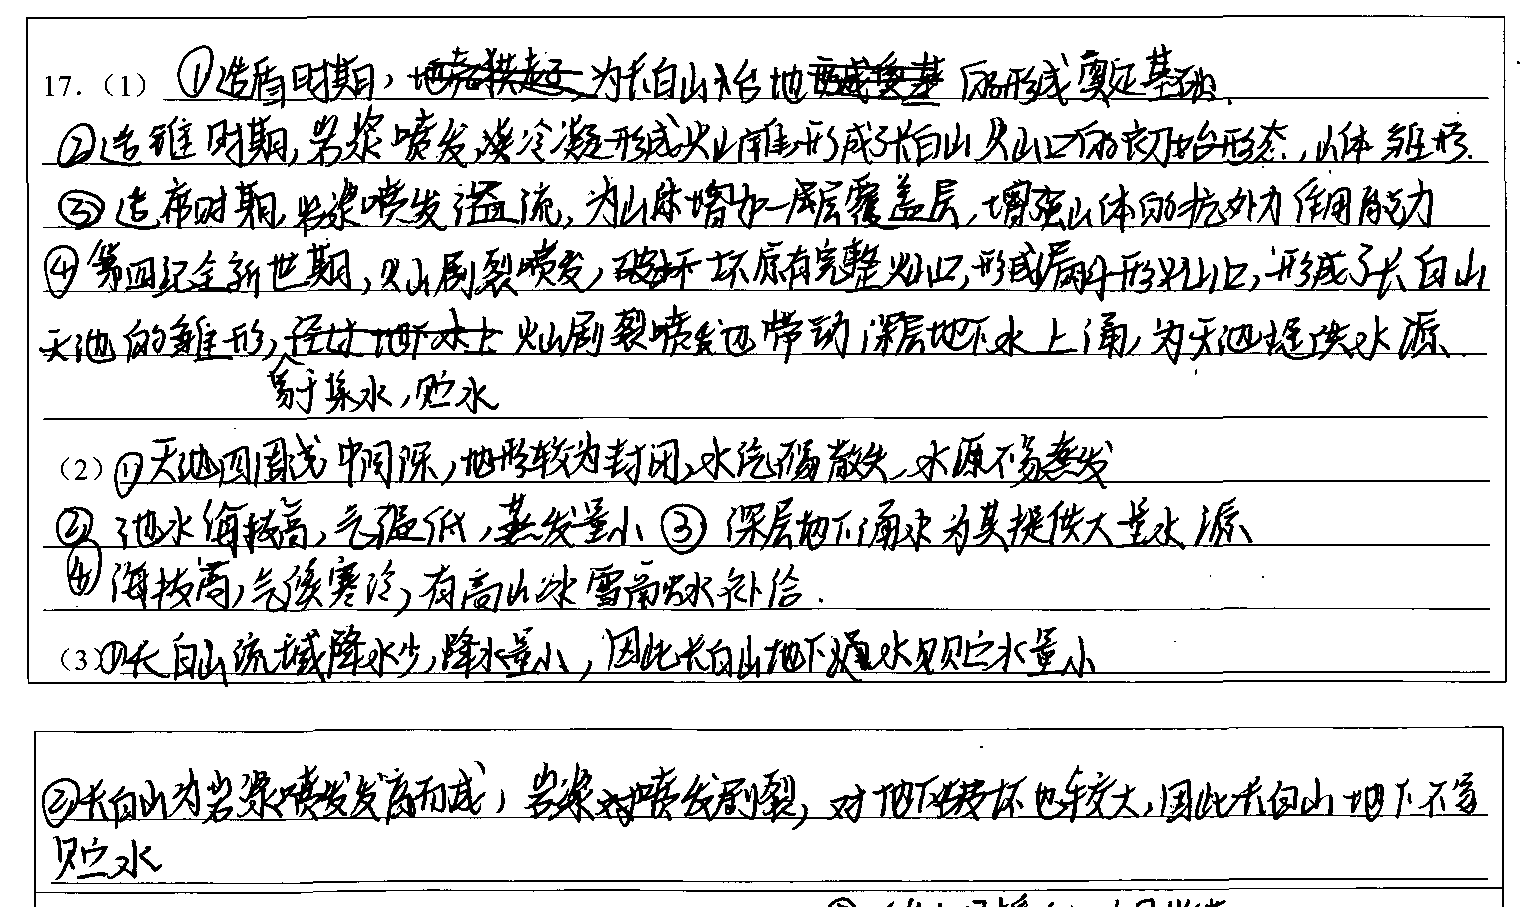 17.（1）①造盾时期，为长白山水台地的形成奠定基础.
②造锥时期,岩浆喷发,冷凝形成火山锥,形成了长白山火山口的初始形态,山体雏形.
③造席时期,岩浆喷发溢流,为山体增加一层层覆盖层,增强山体的抗外力作用能力
④第四纪全新世期,火山剧裂喷发,破坏原有完整火山口,形成漏斗形火山口,形成了长白山
天池的雏形,火山剧裂喷发也带动深层地下水上涌,为天池提供水源、
易于集水,贮水
（2）①天池四周浅中间深,地形较为封闭,水汽不易散失,水源不易蒸发
② 池水海拔高,气温低,蒸发量小 ③ 深层地下涌水为其提供大量水源
④海拔高,气候寒冷,有高山冰雪融水补给.
（3）①长白山流域降水少,降水量小,因此长白山地下通水贮水量小
②长白山为岩浆喷发发育而成,岩浆喷发剧裂,对地下破坏也较大,因此长白山地下不易
贮水